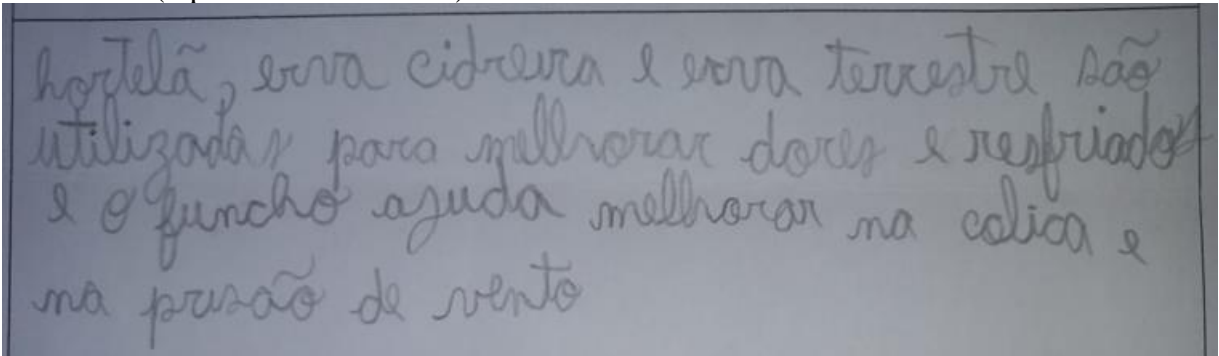 hortelã, erva cidreira e erva terrestre são
utilizadas para melhorar dores e resfriados
e o funcho ajuda melhorar na colica e
na prisão de vento